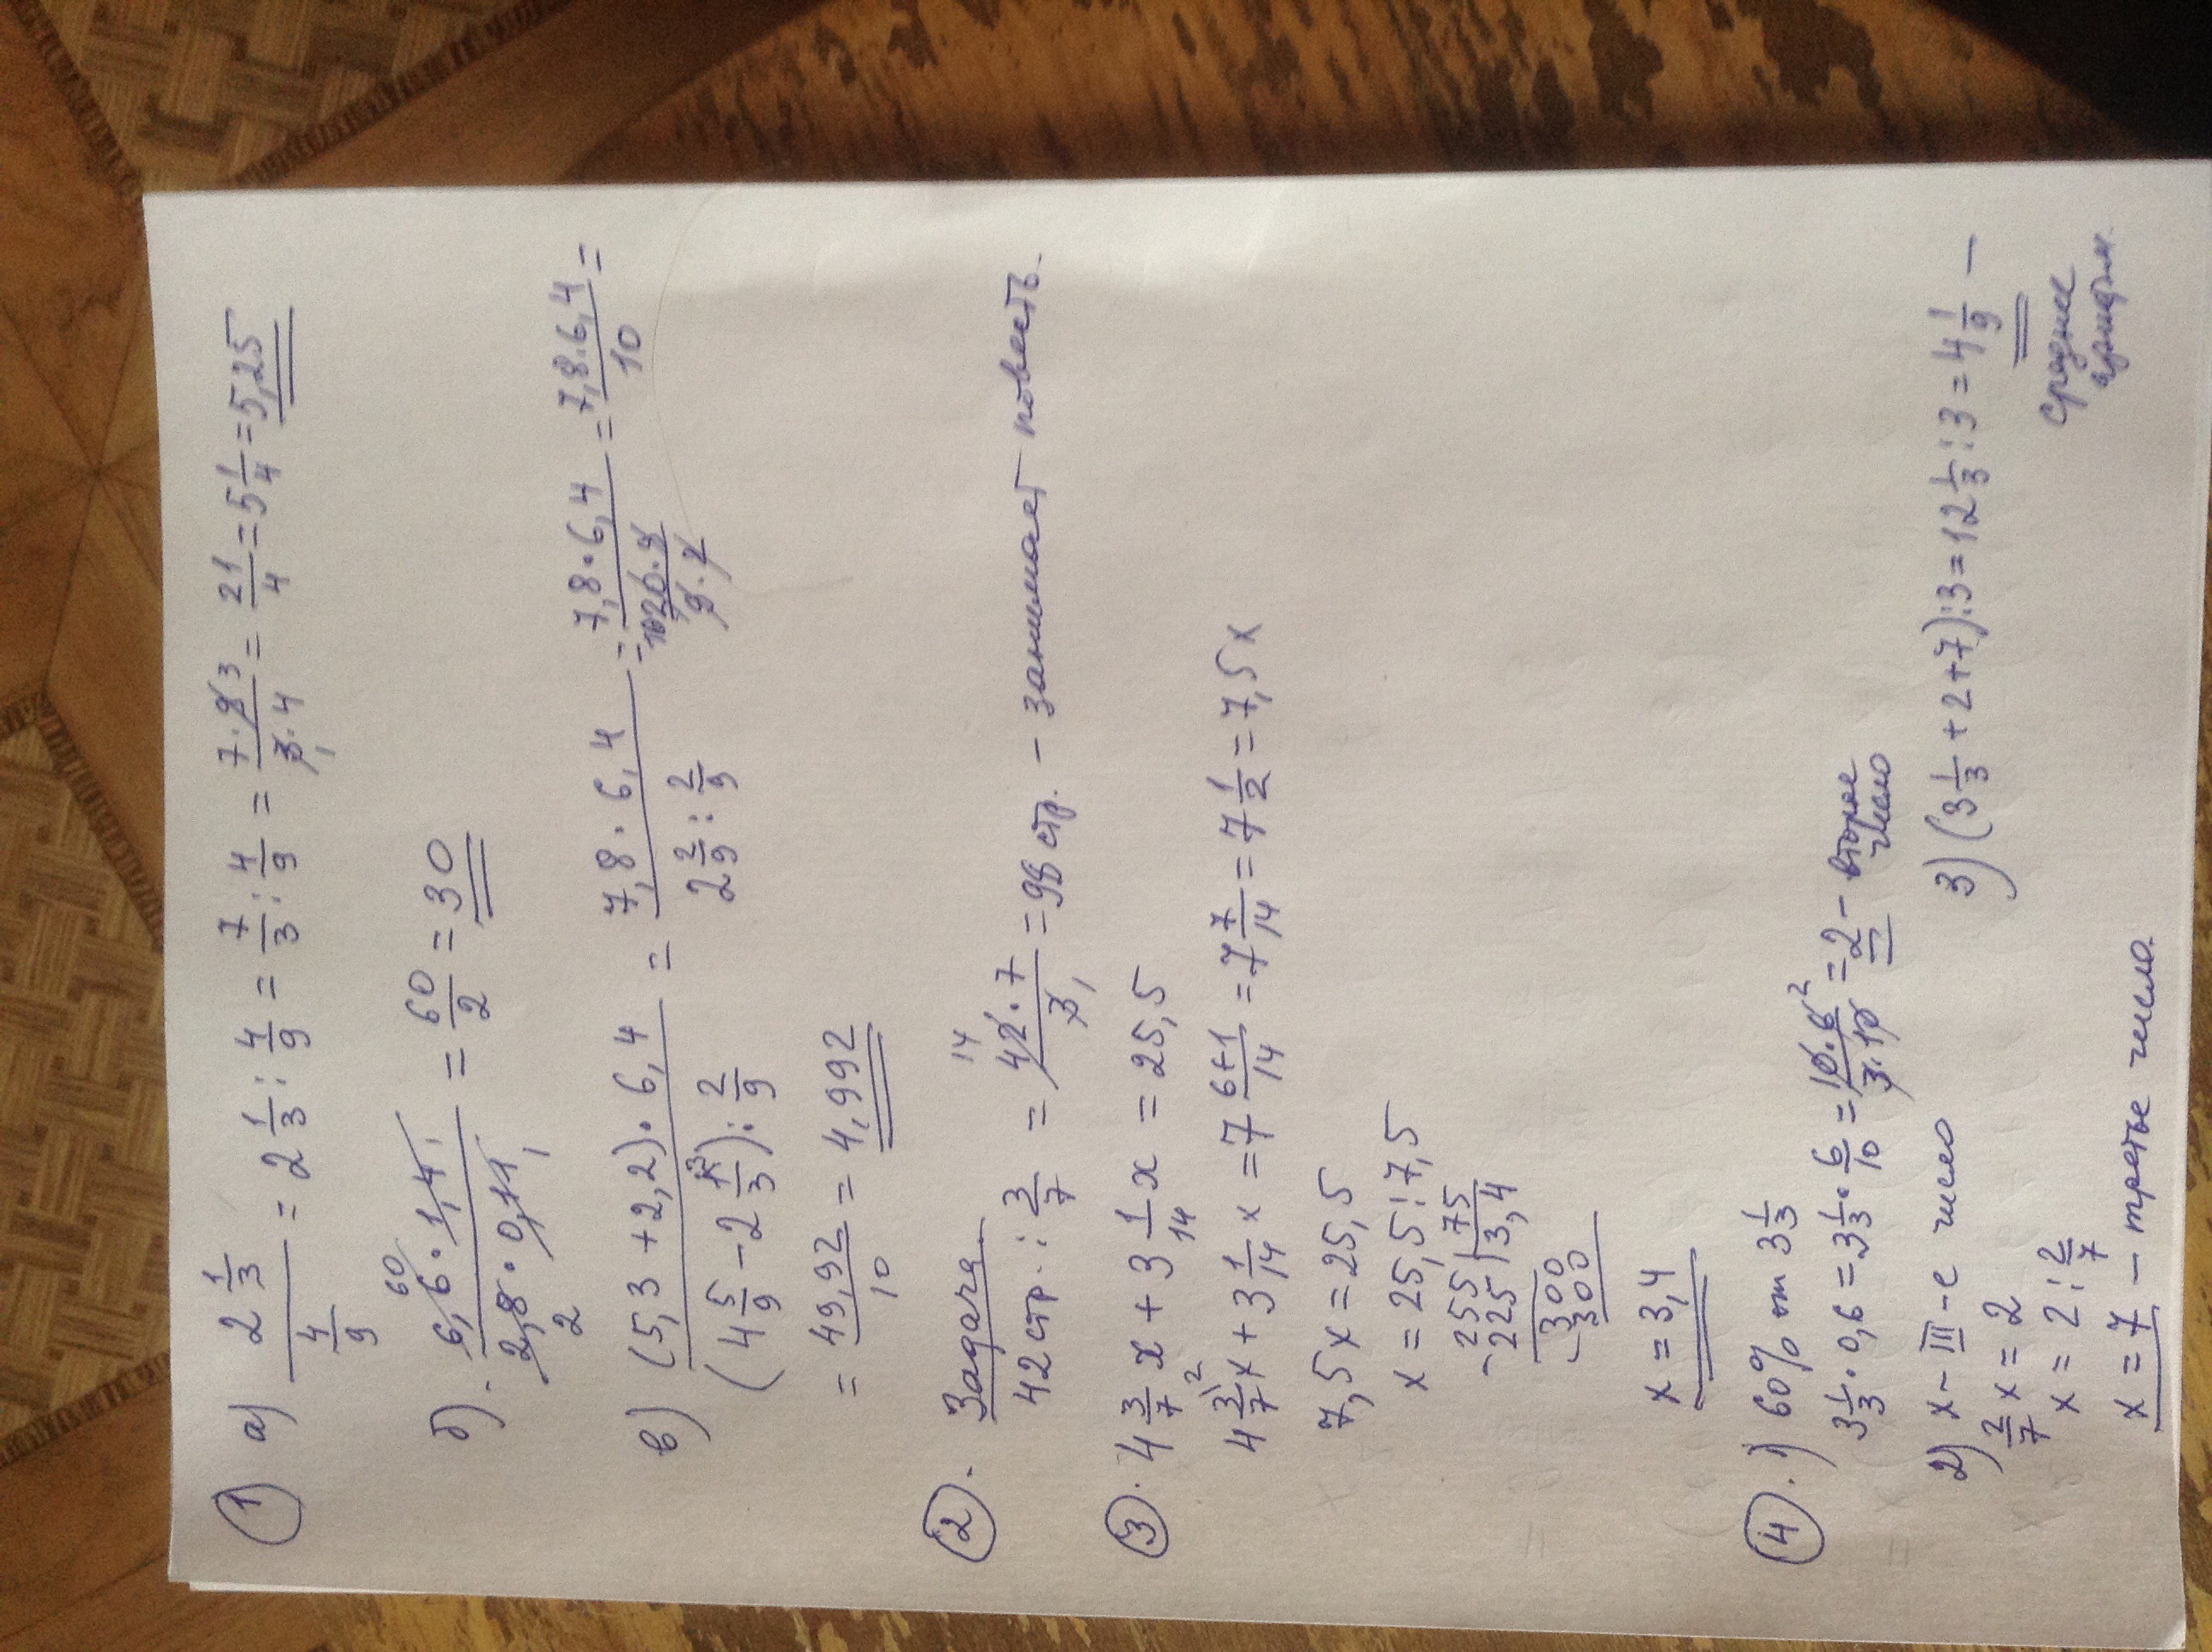 1) а) 2 1/3 / 4/9 = 2 1/3 : 4/9 = 7/3 : 4/9 = 7·9 3 / 3·4 1 = 21/4 = 5 1/4 = 5,25
б). 60 6,6 · 1,4 1 / 2,8 · 0,11 2 1 = 60/2 = 30
в) (5,3 + 2,2) · 6,4 / (4 5/9 - 2 1/3 3) : 2/9 = 7,8 · 6,4 / 2 2/9 : 2/9 = 7,8 · 6,4 / 10 20·9 / 9·2 = 7,8·6,4 / 10 =
= 49,92 / 10 = 4,992
2. Задача.
42 стр. : 3/7 = 14 42·7 / 3 1 = 98 стр. - занимает повесть.
3. 4 3/7 x + 3 1/14 x = 25,5
4 3/7 2 x + 3 1/14 x = 7 6+1/14 = 7 7/14 = 7 1/2 = 7,5x
7,5x = 25,5
x = 25,5 : 7,5
-255 | 75
225 | 3,4
-300
300
x = 3,4
4. 1) 60% от 3 1/3
3 1/3 · 0,6 = 3 1/3 · 6/10 = 10·6 2 / 3·10 = 2 - второе число
2) x - III-е число
2/7 x = 2
x = 2 : 2/7
x = 7 - третье число.
3) (3 1/3 + 2 + 7) : 3 = 12 1/3 : 3 = 4 1/9 -
среднее
арифм.